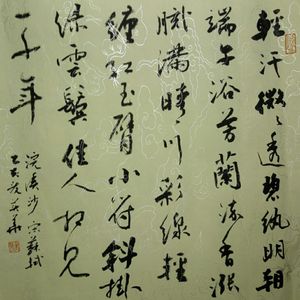 輕汗微々透碧紈明朝
端午浴芳蘭流香漲
膩滿晴川彩線輕
纏紅玉臂小符斜掛
綠雲鬟佳人相見
一千年
浣溪沙 宋蘇軾